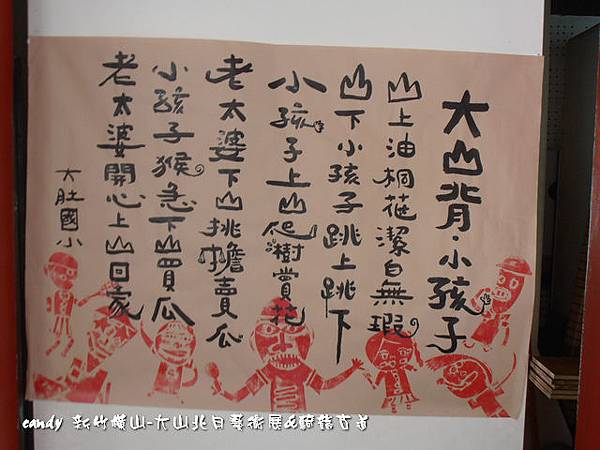 大山背·小孩子
山上油桐花潔白無瑕
山下小孩子跳上跳下
小孩子上山爬樹賞花
老太婆下山挑擔賣瓜
小孩子猴急下山買瓜
老太婆開心上山回家
大肚國小
candy 新竹橫山-大山北月藝術展&騎龍古道